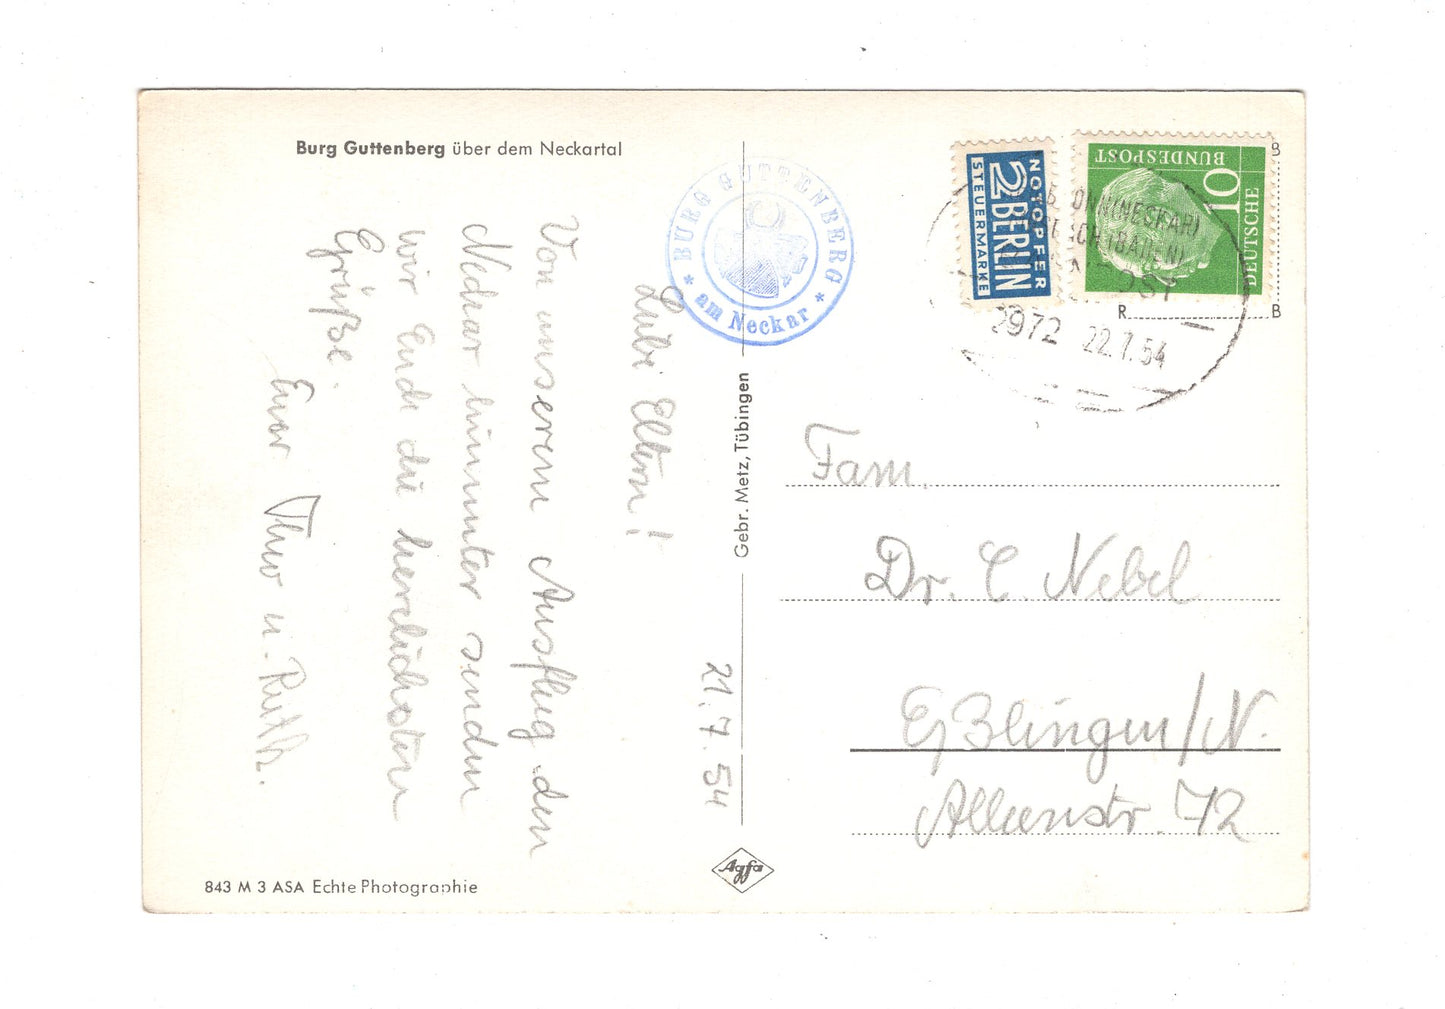 Burg Guttenberg über dem Neckartal
BURG GUTTENBERG
* am Neckar *
21.7.54
Liebe Eltern!
Von unserem Ausflug den
Neckar hinunter senden
wir Euch die herzlichsten
Grüße.
u. Ruth.
NOTOPFER
2 BERLIN
STEUERMARKE
10
DEUTSCHE
BUNDESPOST
2972 22.7.54
B
R B
Fam.
Dr. C. Nebel
Eßlingen/N.
72
Gebr. Metz, Tübingen
Agfa
843 M 3 ASA Echte Photographie